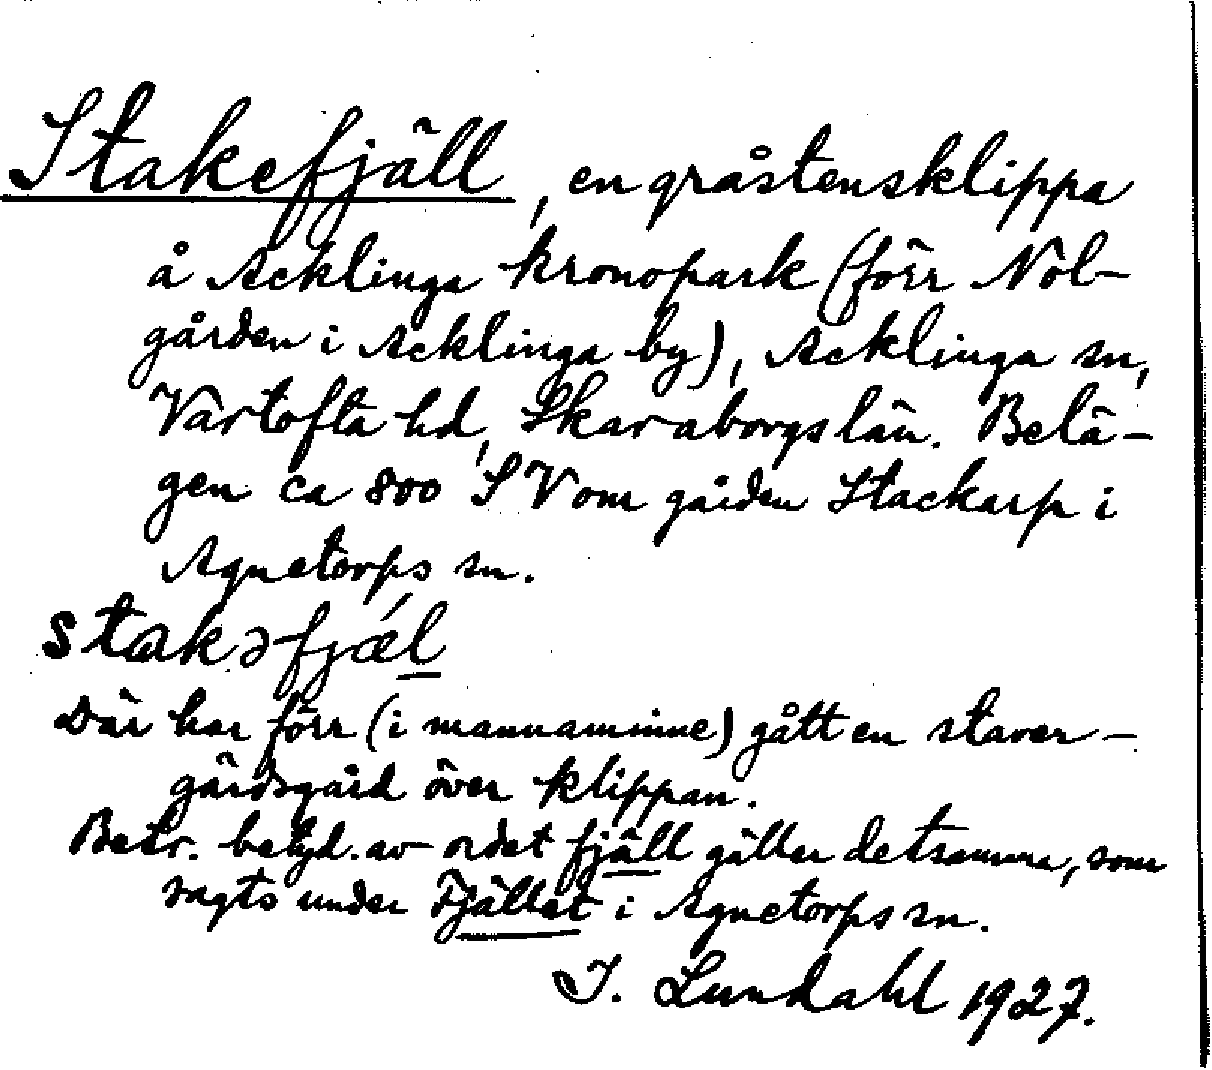 Stakefjäll, en gråstensklippa
å Acklinga kronopark (förr Nol-
gården i Acklinga by), Acklinga sn,
Vartofta hd, Skaraborgs län. Belä-
gen ca 800 SV om gården Stackarp i
Agnetorps sn.
stakəfjæ̀l
Där har förr (i mannaminne) gått en staver-
gärdsgård över klippan.
Betr. betyd. av ordet fjäll gäller detsamma, som
sagts under Fjället i Agnetorps sn.
I. Lundahl 1927.